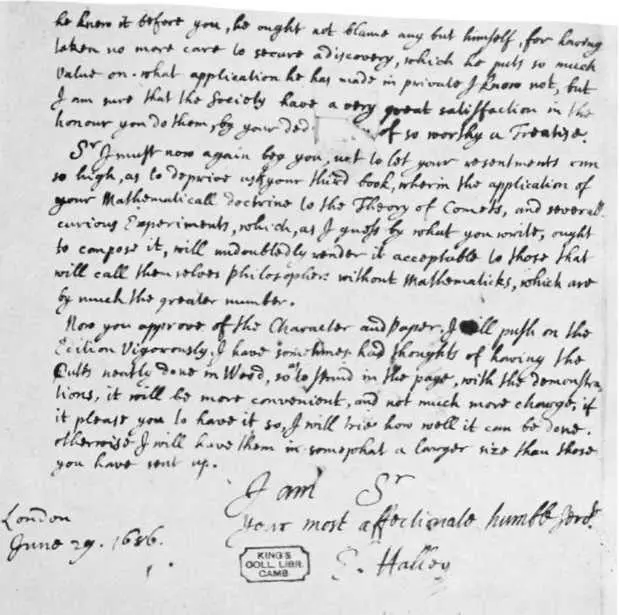 he knew it before you, he ought not blame any but himself, for having
taken no more care to secure a discovery, which he puts so much
Value on. what application he has made in private I know not, but
I am sure that the Society have a very great satisfaction in the
honour you do them, by your ded of so worthy a Treatise.
Sr I must now again beg you, not to let your resentments run
so high, as to deprive us of your third book, wherin the application of
your Mathematicall doctrine to the Theory of Comets, and severall
curious Experiments, which, as I guess by what you write, ought
to compose it, will undoubtedly render it acceptable to those that
will call themselves philosophers without Mathematicks, which are
by much the greater number.
Now you approve of the Character and Paper, I will push on the
Edition Vigorously. I have sometimes had thoughts of having the
Cutts neatly done in Wood, so as to stand in the page, with the demonstra
tions, it will be more convenient, and not much more charge, if
it please you to have it so, I will trie how well it can be done.
otherwise I will have them in somewhat a larger size than those
you have sent up.
I am Sr
Your most affectionate humble servt.
E. Halley
London
June 29. 1686.
KING'S
COLL. LIBR.
CAMB